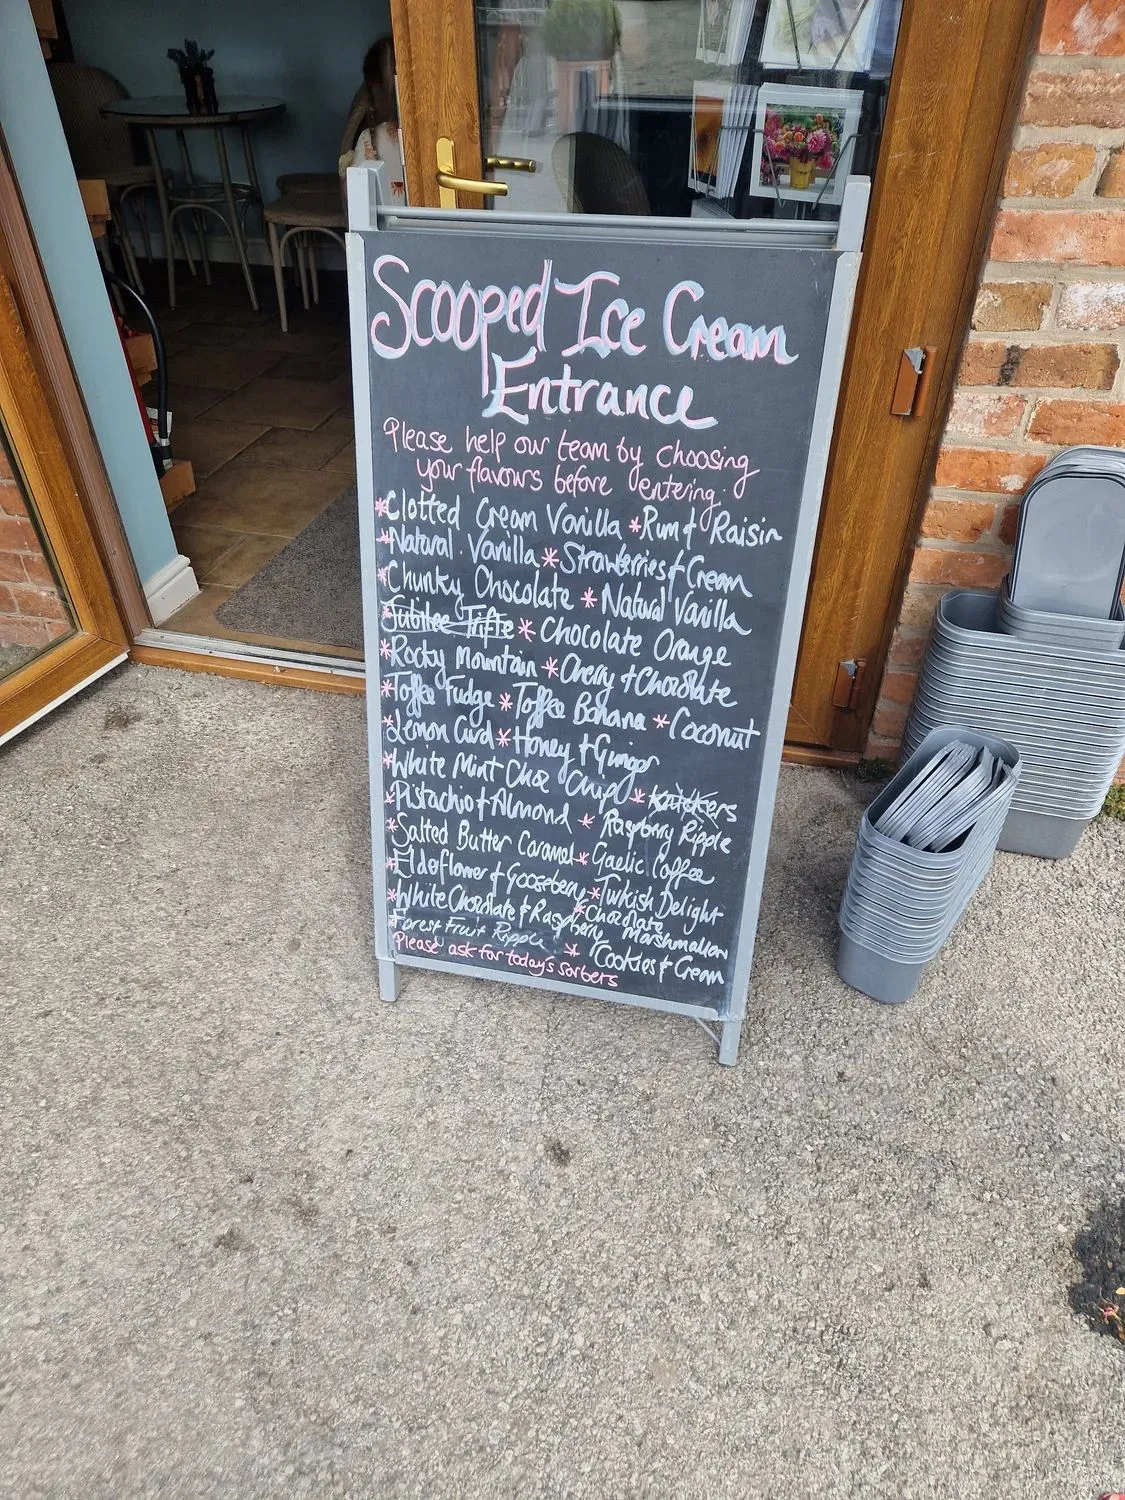 Scooped Ice Cream
Entrance
Please help our team by choosing
your flavours before entering.
*Clotted Cream Vanilla *Rum & Raisin
*Natural Vanilla *Strawberries & Cream
*Chunky Chocolate *Natural Vanilla
*Jubilee Trifle *Chocolate Orange
*Rocky Mountain *Cherry & Chocolate
*Toffee Fudge *Toffee Banana *Coconut
*Lemon Curd *Honey & Ginger
*White Mint Choc Chip *
*Pistachio & Almond *Raspberry Ripple
*Salted Butter Caramel *Gaelic Coffee
*Elderflower & Gooseberry *Turkish Delight
*White Chocolate & Raspberry *Chocolate Marshmallow
*Forest Fruit Ripple *Cookies & Cream
Please ask for today's sorbets